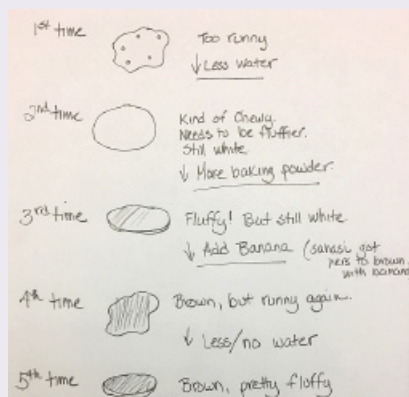 1st time
Too runny
↓ Less water
2nd time
Kind of Chewy.
Needs to be fluffier.
Still white
↓ More baking powder.
3rd time
Fluffy! But still white.
↓ Add Banana (sahasi got
hers to brown
with banana
4th time
Brown, but runny again.
↓ Less/no water
5th time
Brown, pretty fluffy